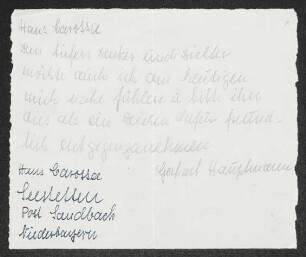 Hans Carossa
dem tiefen Denker und Dichter
möchte auch ich am heutigen
mich nahe fühlen u bitte ihn
dies als ein Zeichen freund-
lich entgegenzunehmen
Gerhart Hauptmann
Hans Carossa
Seestetten
Post Sandbach
Niederbayern